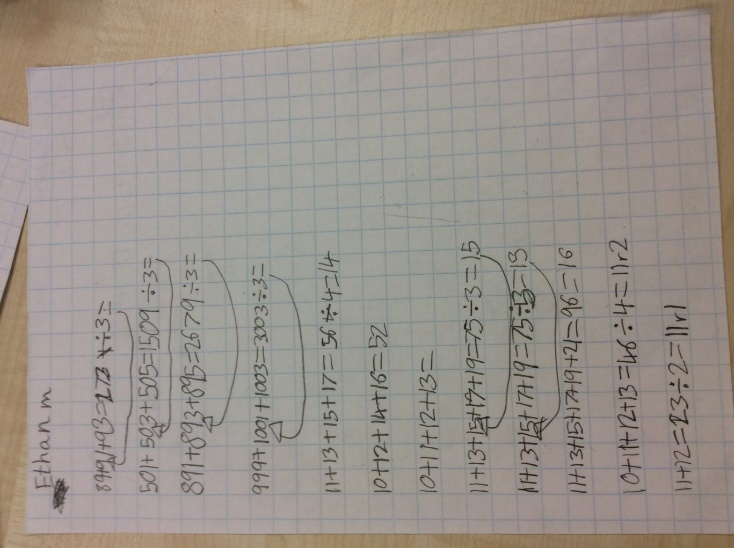 Ethan m
89+91+93=273 ÷3=
501+503+505=1509 ÷3=
891+893+895=2679 ÷3=
999+1001+1003=3003÷3=
11+13+15+17=56÷4=14
10+12+14+16=52
10+11+12+13=
11+13+15+17+19=75÷3=15
11+13+15+17+19=75÷3=13
11+13+15+17+19+21=96=16
10+11+12+13=46÷4=11r2
11+12=23÷2=11r1